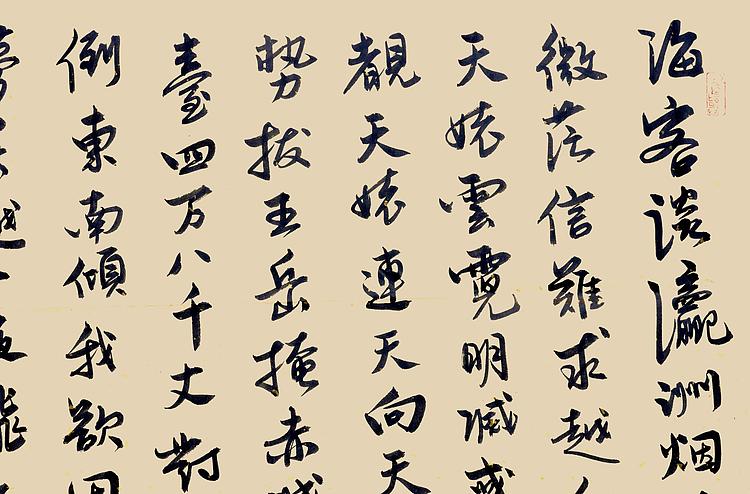 海客談瀛洲烟
微茫信難求越
天姥雲霓明滅或
覩天姥連天向天
勢拔五岳掩赤城
臺四万八千丈對
倒東南傾我欲因